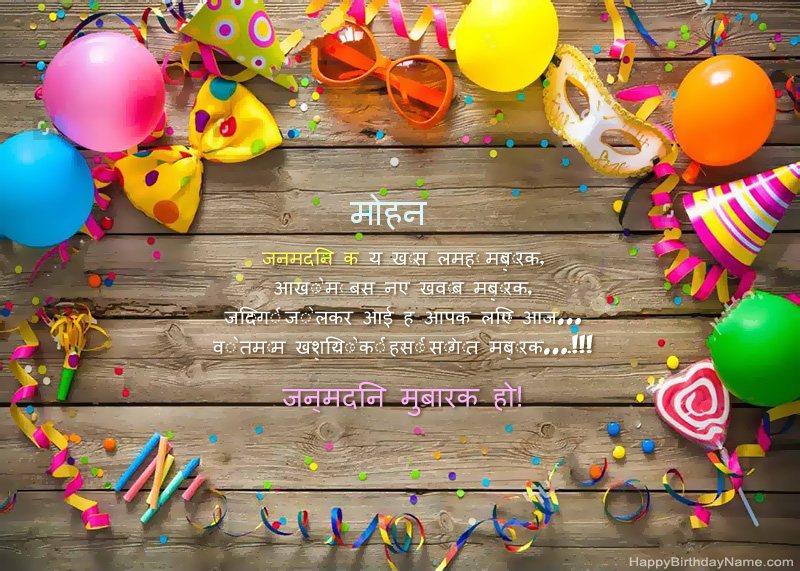 मोहन
जनमदनि क य खास लमहा मबारक,
आखो में बस नए खवाब मबारक,
जदिगी जो लेकर आई ह आपक लएि आज...
वो तमाम खशयिों की हसीं सौगात मबारक...!!!
जन्मदनि मुबारक हो!
HappyBirthdayName.com